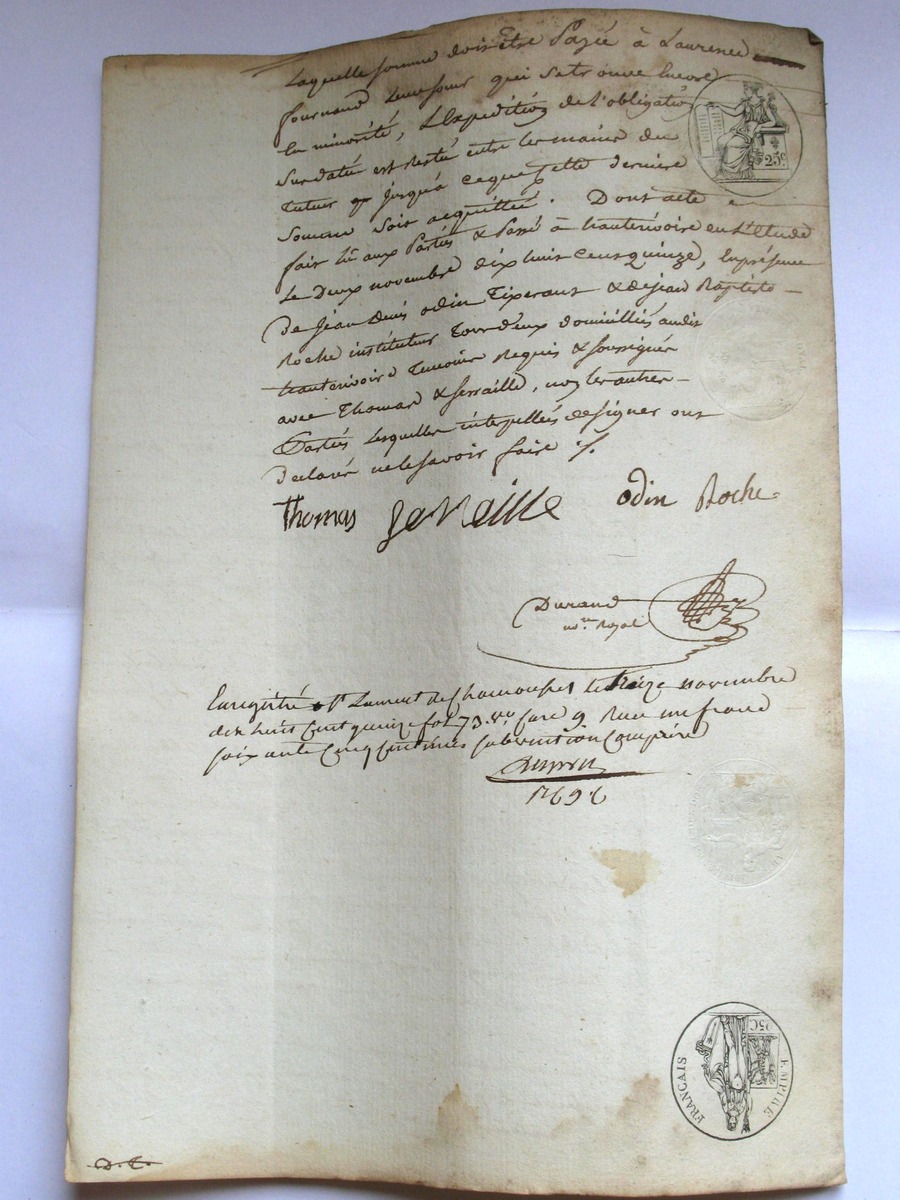 Laquelle somme doit être Payée à Laurence
fournand leur sœur qui se trouve encore
En minorité, L'Expedition de l'obligation
Sus datée est resté entre les mains du
tuteur jusqu'à ceque cette derniere
Somme soit acquittée. Dont acte
fait lu aux Parties & Passé à hauterivoire en L'Etude
Le Deux novembre dix huit cent quinze, En présence
De Jean Denis odin Tixerant & de Jean Baptiste
Roche instituteur tous deux domiciliés audit
hauterivoire Temoins Requis & soussignés
avec Thomas & Serraille, non les autres
Parties Lesquelles interpellées de signer ont
Déclaré ne le savoir faire ./.
Thomas Serraille odin Roche
25c
Durand
no.re Royal
Enregistré à St Laurent de Chamousset le treize novembre
dix huit cent quinze fol 73 Vo case 9 Reçu un franc
soixante cinq centimes subvention Comprise
25C
EMPIRE
FRANCAIS